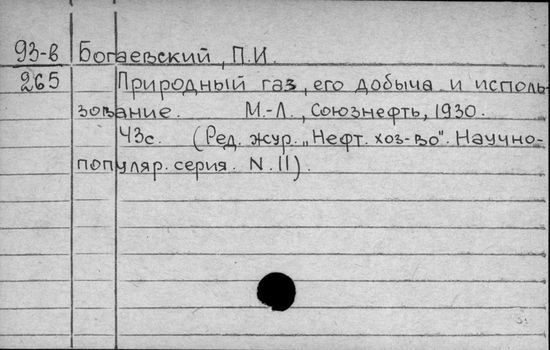 93-в Богаевский, П.И.
265 Природный газ, его добыча и исполь-
зование. М.-Л., Союзнефть, 1930.
43с. (Ред. жур. „Нефт. хоз-во". Научно-
популяр. серия. N. 11).